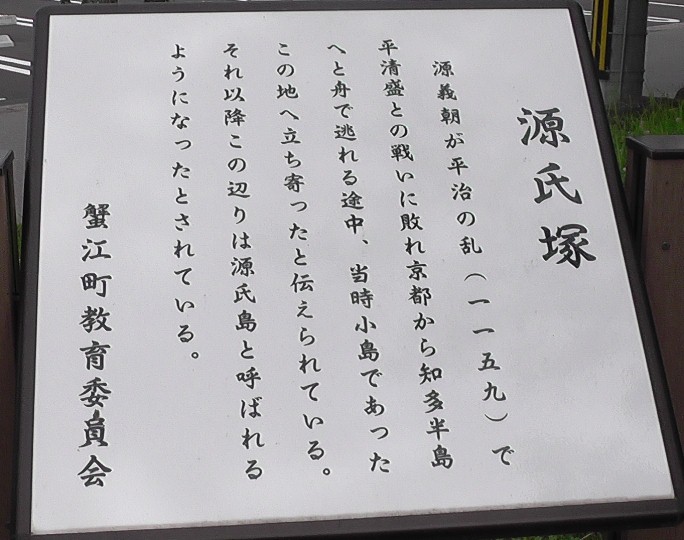 源氏塚
源義朝が平治の乱(一一五九)で
平清盛との戦いに敗れ京都から知多半島
へと舟で逃れる途中、当時小島であった
この地へ立ち寄ったと伝えられている。
それ以降この辺りは源氏島と呼ばれる
ようになったとされている。
蟹江町教育委員会